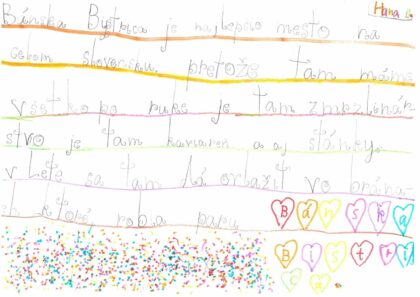 Hana L.
Bánska Bystrica je najlepšie mesto na
celom slovensku. pretože tam máme
všetko po ruke je tam zmrzlinár-
stvo je tam kaviareň a aj stánky.
v lete sa tam dá orlažiť vo
robia paru
B á n s k a
B i s t r i
c a